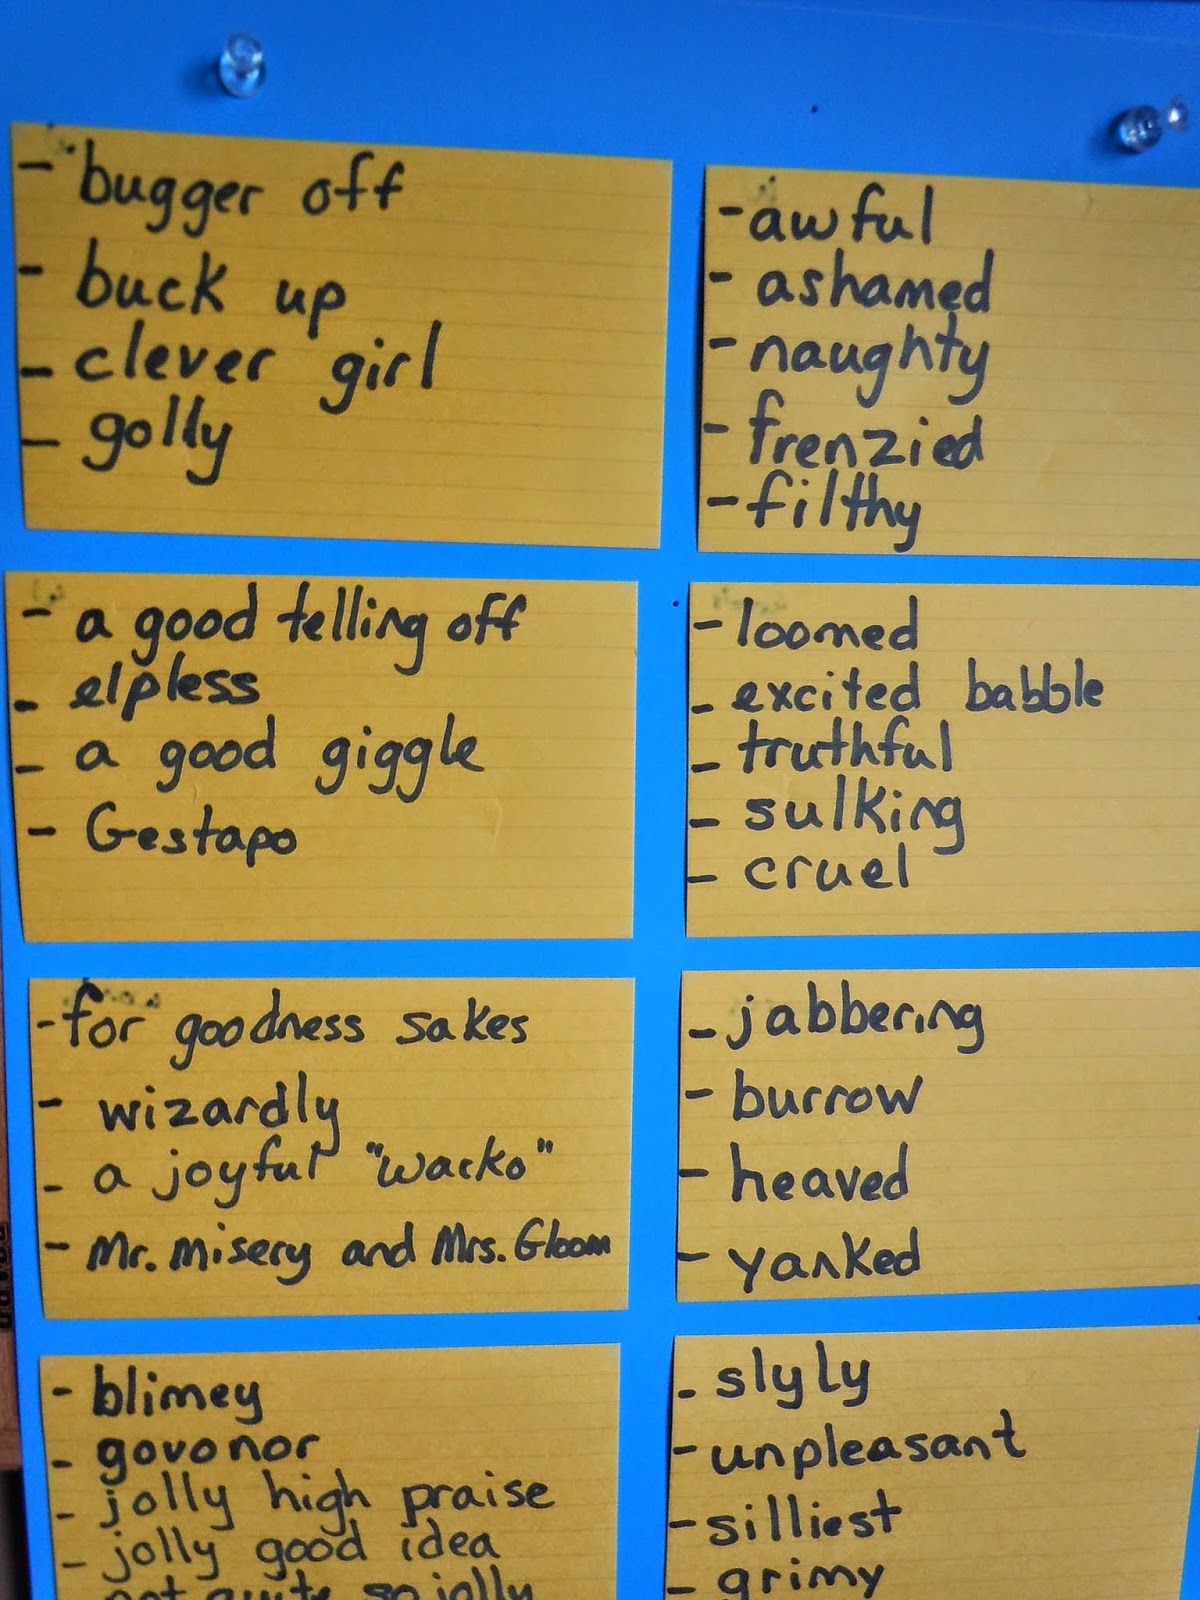 - bugger off
- buck up
- clever girl
- golly
- awful
- ashamed
- naughty
- frenzied
- filthy
- a good telling off
- elpless
- a good giggle
- Gestapo
- loomed
- excited babble
- truthful
- sulking
- cruel
- for goodness sakes
- wizardly
- a joyful "wacko"
- Mr. Misery and Mrs. Gloom
- jabbering
- burrow
- heaved
- yanked
- blimey
- govonor
- jolly high praise
- jolly good idea
not quite so jolly
- slyly
- unpleasant
- silliest
- grimy